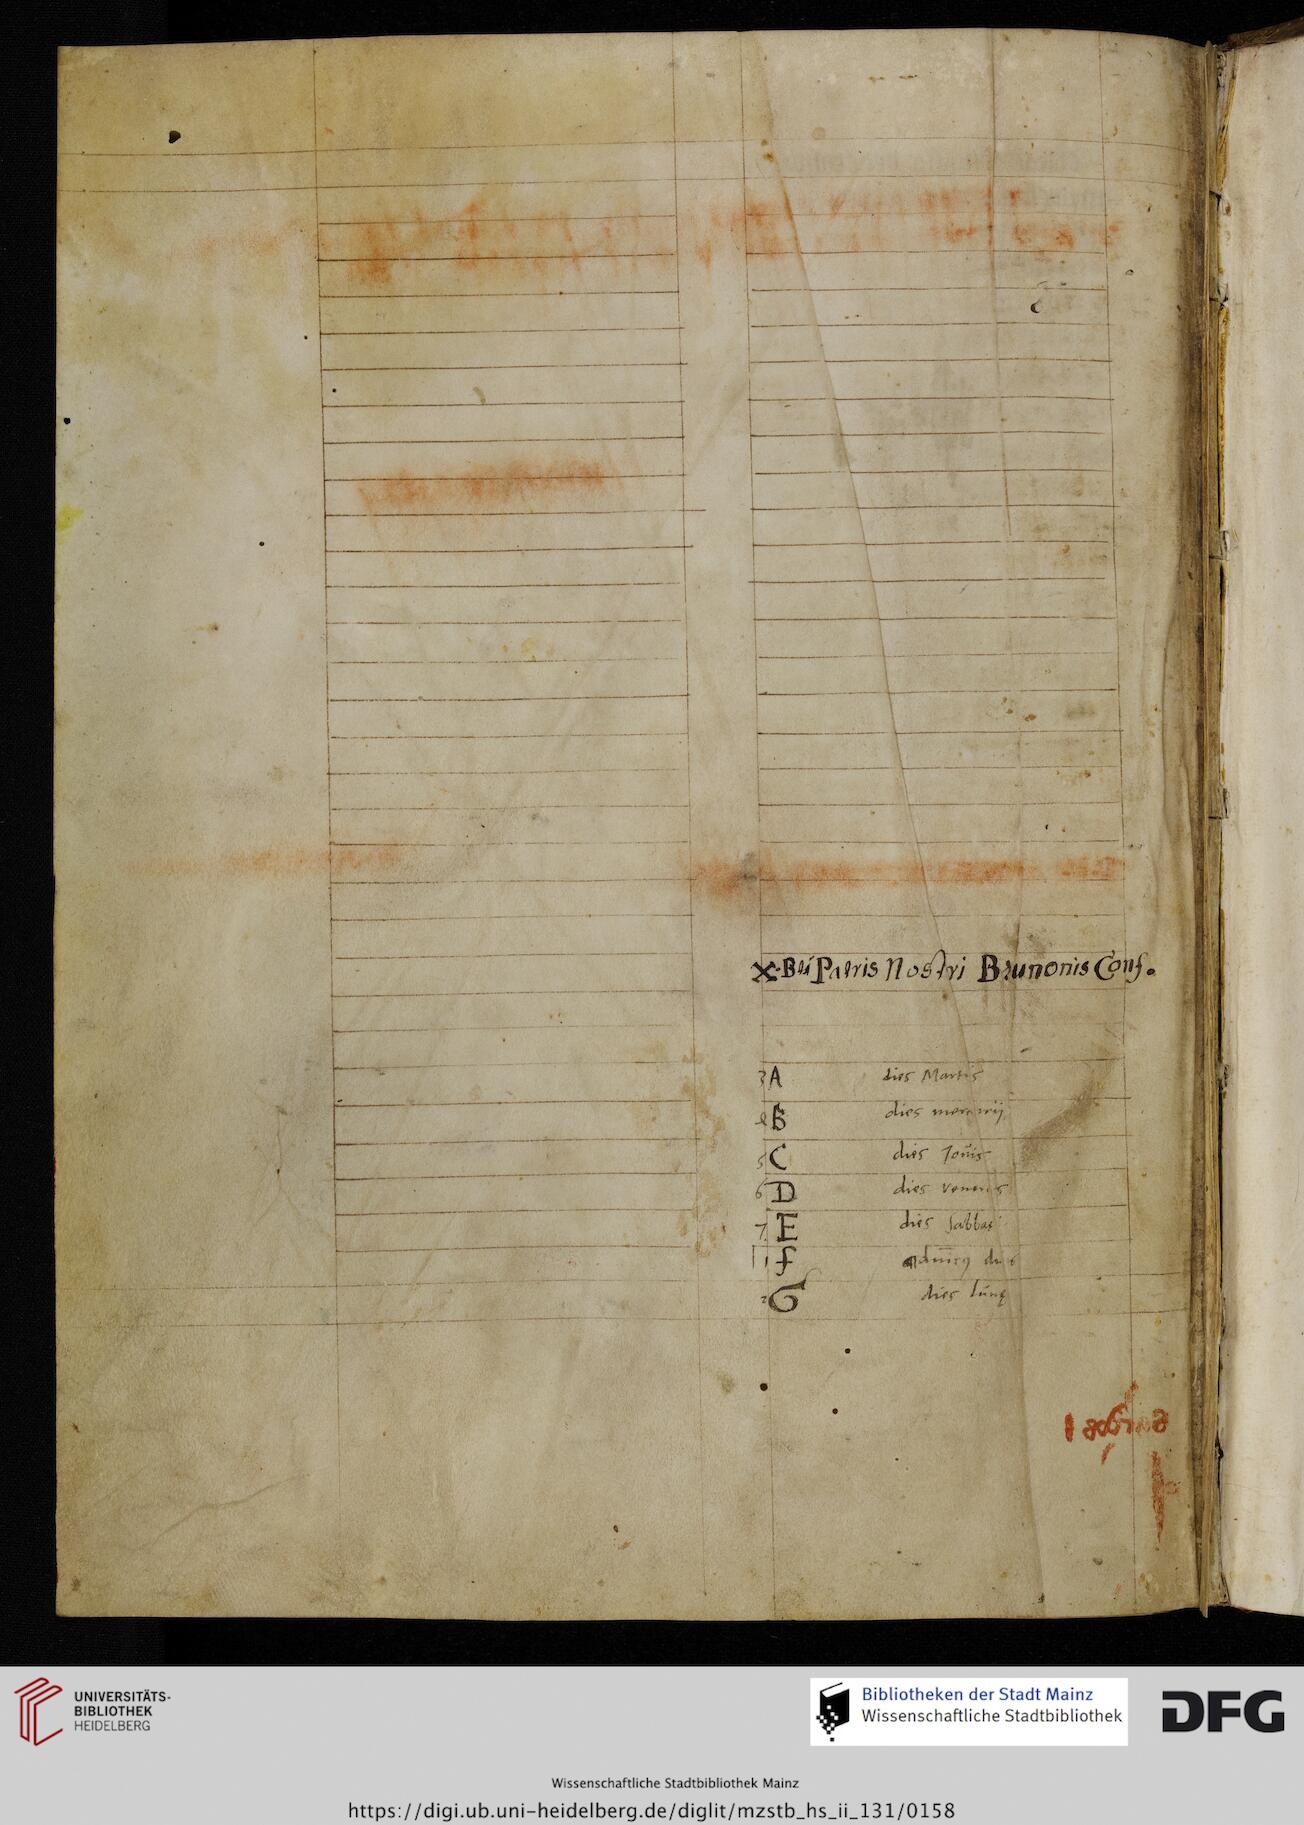 X. Bti Patris Nostri Brunonis Conf.
3 A dies Martis
4 B dies mercurij
5 C dies Jovis
6 D dies veneris
7 E dies sabbati
1 f dies
2 G dies lunę
UNIVERSITÄTS-
BIBLIOTHEK
HEIDELBERG
Bibliotheken der Stadt Mainz
Wissenschaftliche Stadtbibliothek
DFG
Wissenschaftliche Stadtbibliothek Mainz
https://digi.ub.uni-heidelberg.de/diglit/mzstb_hs_ii_131/0158